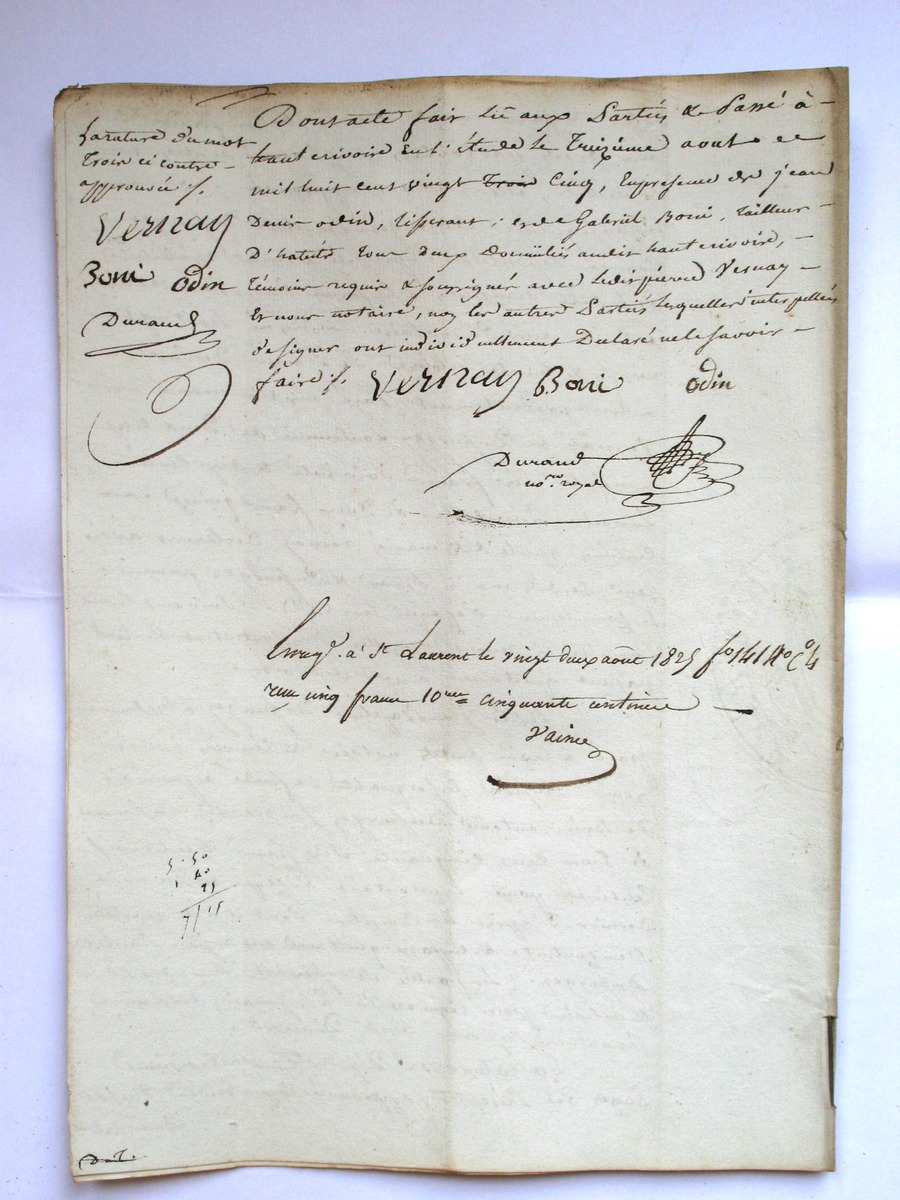 La rature du mot
Trois ci contre
approuvée ./.
Vernay
Boni Odin
Durand
Dont acte fait lu aux Parties & Passé à
haut rivoire en l'étude le Treizième aout
mil huit cent vingt Trois Cinq, En presence de jean
Denis odin, tisserant, et de Gabriel Boni, tailleur
D'habits tous deux Domiciliés audit haut rivoire,
témoins requis & soussignés avec ledit pierre Vernay
Et nous notaire, non les autres Parties lesquelles interpellées
de signer ont individuellement Declaré ne le savoir
faire ./. Vernay Boni odin
Durand
no.re royal
Enreg.é à St Laurent le vingt deux août 1825 fo 141 Ro Co 4
reçu cinq francs 10me cinquante centimes
5. 50
1 40
25
7/15